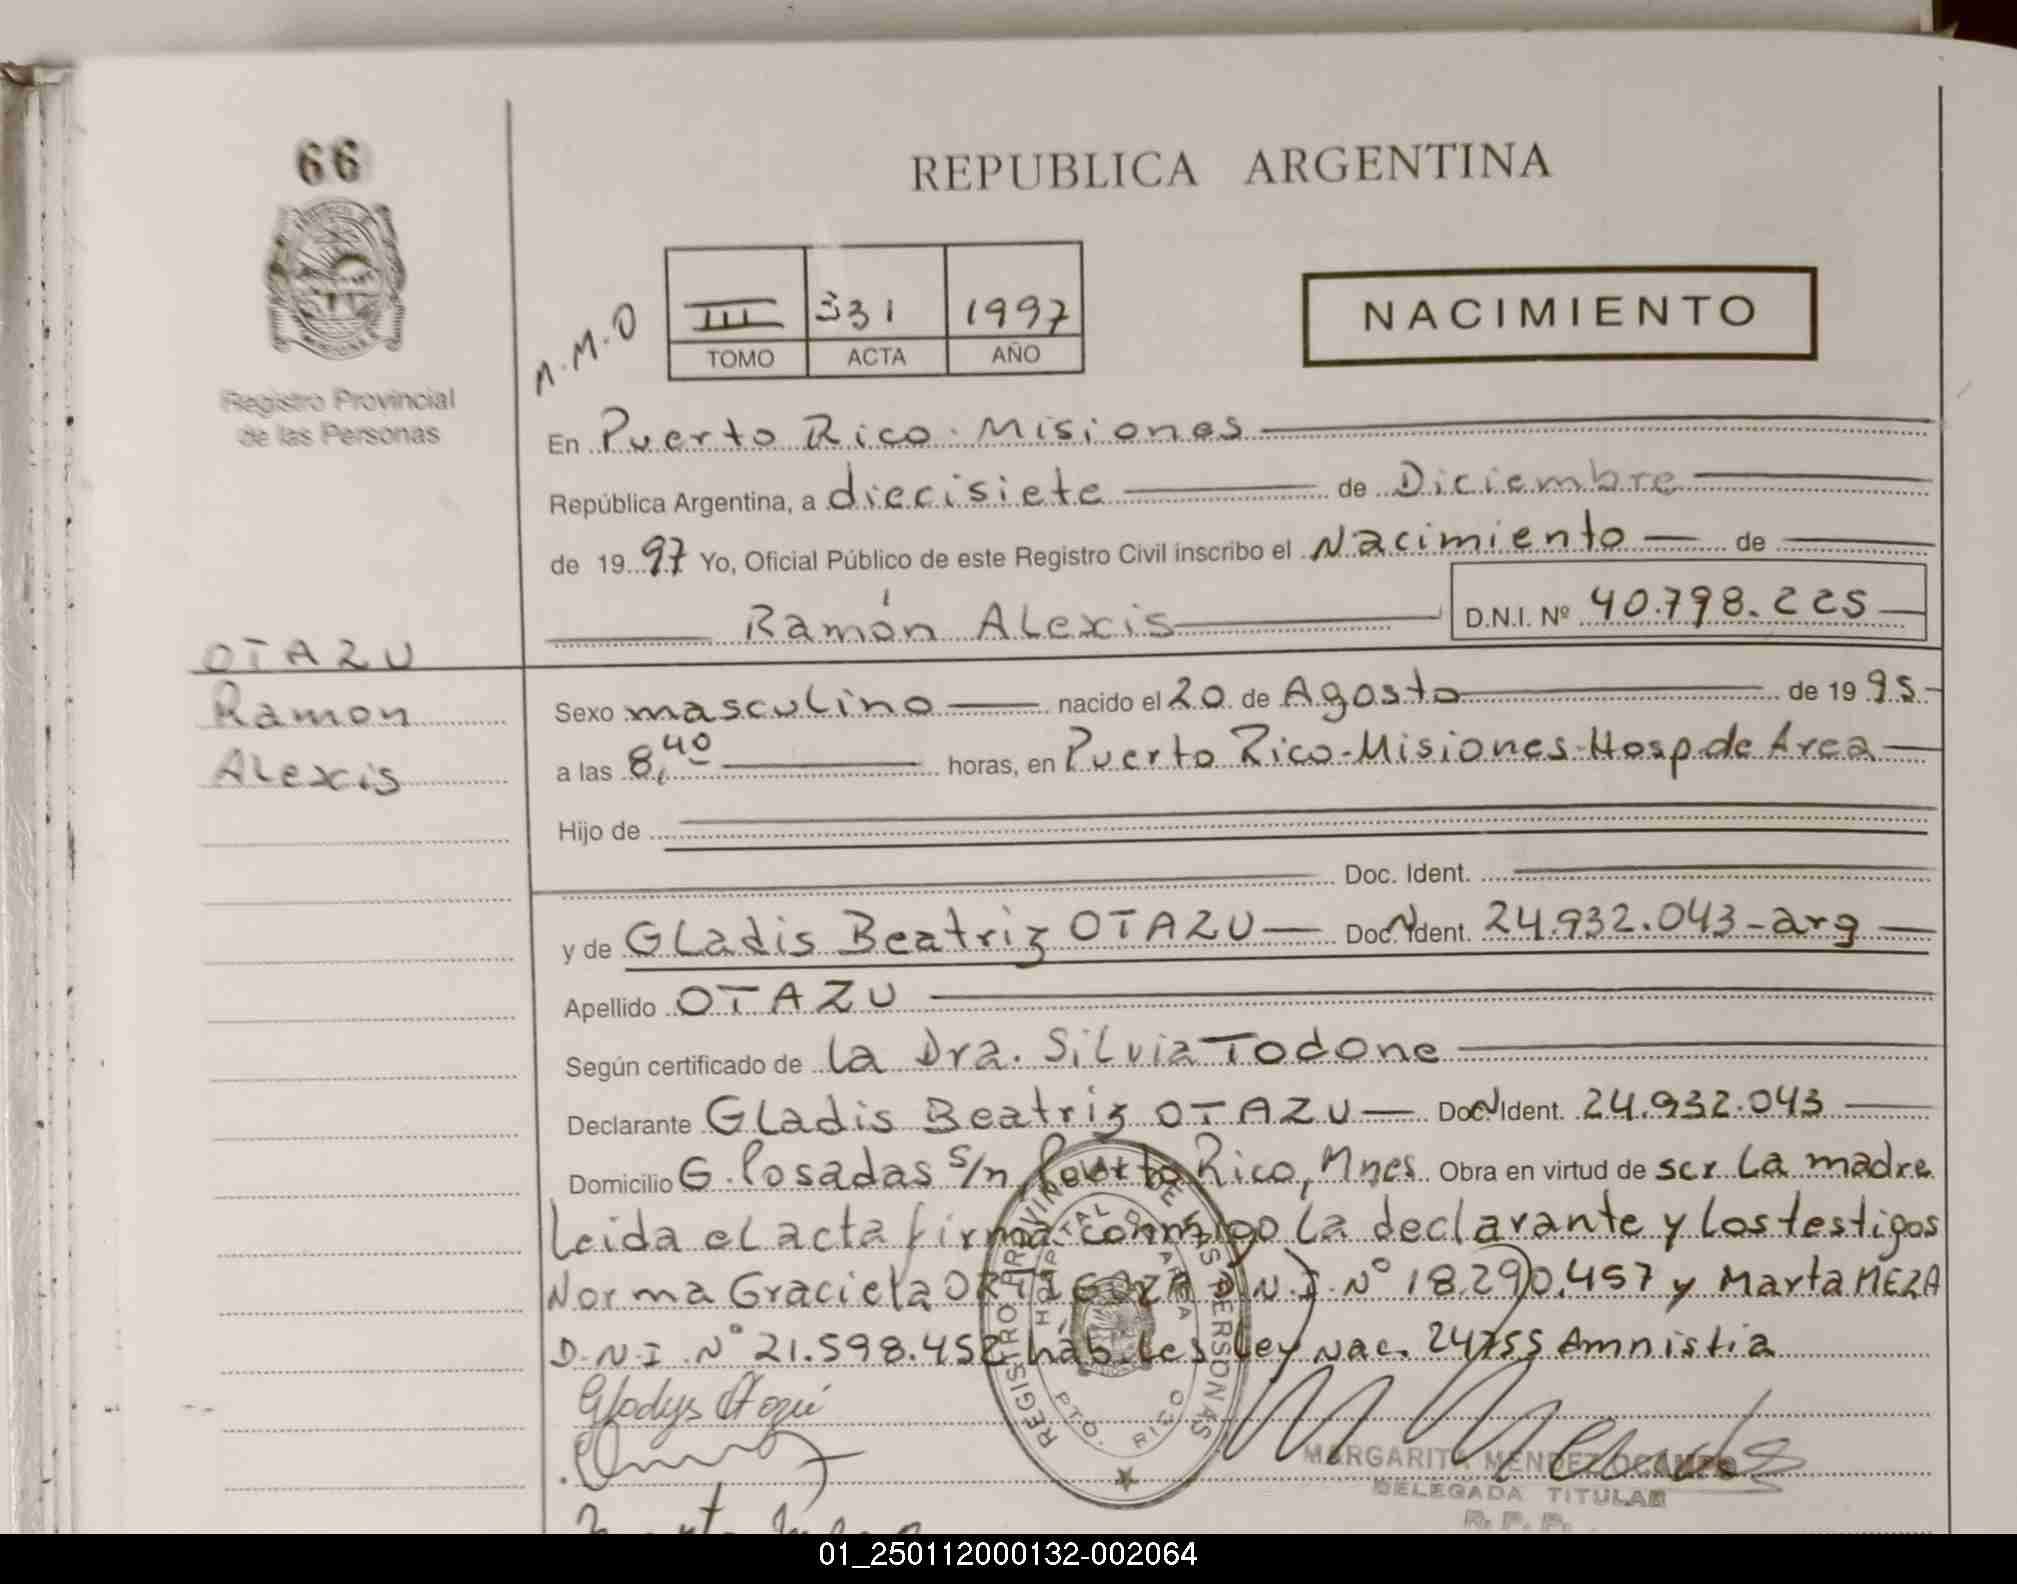 66
REPUBLICA ARGENTINA
M.M.O
III 331 1997
TOMO ACTA AÑO
NACIMIENTO
Registro Provincial
de las Personas
En Puerto Rico - Misiones
República Argentina, a diecisiete de Diciembre
de 1997 Yo, Oficial Público de este Registro Civil inscribo el Nacimiento de
Ramón Alexis D.N.I. Nº 40.798.225
OTAZU
Ramon
Alexis
Sexo masculino nacido el 20 de Agosto de 1995
a las 8,40 horas, en Puerto Rico-Misiones-Hosp.de Area
Hijo de
Doc. Ident.
y de Gladis Beatriz OTAZU Doc. Ident. 24.932.043-arg
Apellido OTAZU
Según certificado de la Dra. Silvia Todone
Declarante Gladis Beatriz OTAZU Doc. Ident. 24.932.043
Domicilio G. Posadas s/n Puerto Rico, Mnes. Obra en virtud de ser La madre
Leida el acta firma conmigo la declarante y los testigos
Norma Graciela D.N.I. Nº 18.290.457 y Marta MEZA
D.N.I. Nº 21.598.452 hábiles Ley Nac. 24755 Amnistia
Gladys Otazú
REGISTRO PROVINCIAL DE LAS PERSONAS
HOSPITAL DE AREA
PTO. RICO
MARGARITA MENDEZ OCAMPO
DELEGADA TITULAR
R. P. P.
01_250112000132-002064